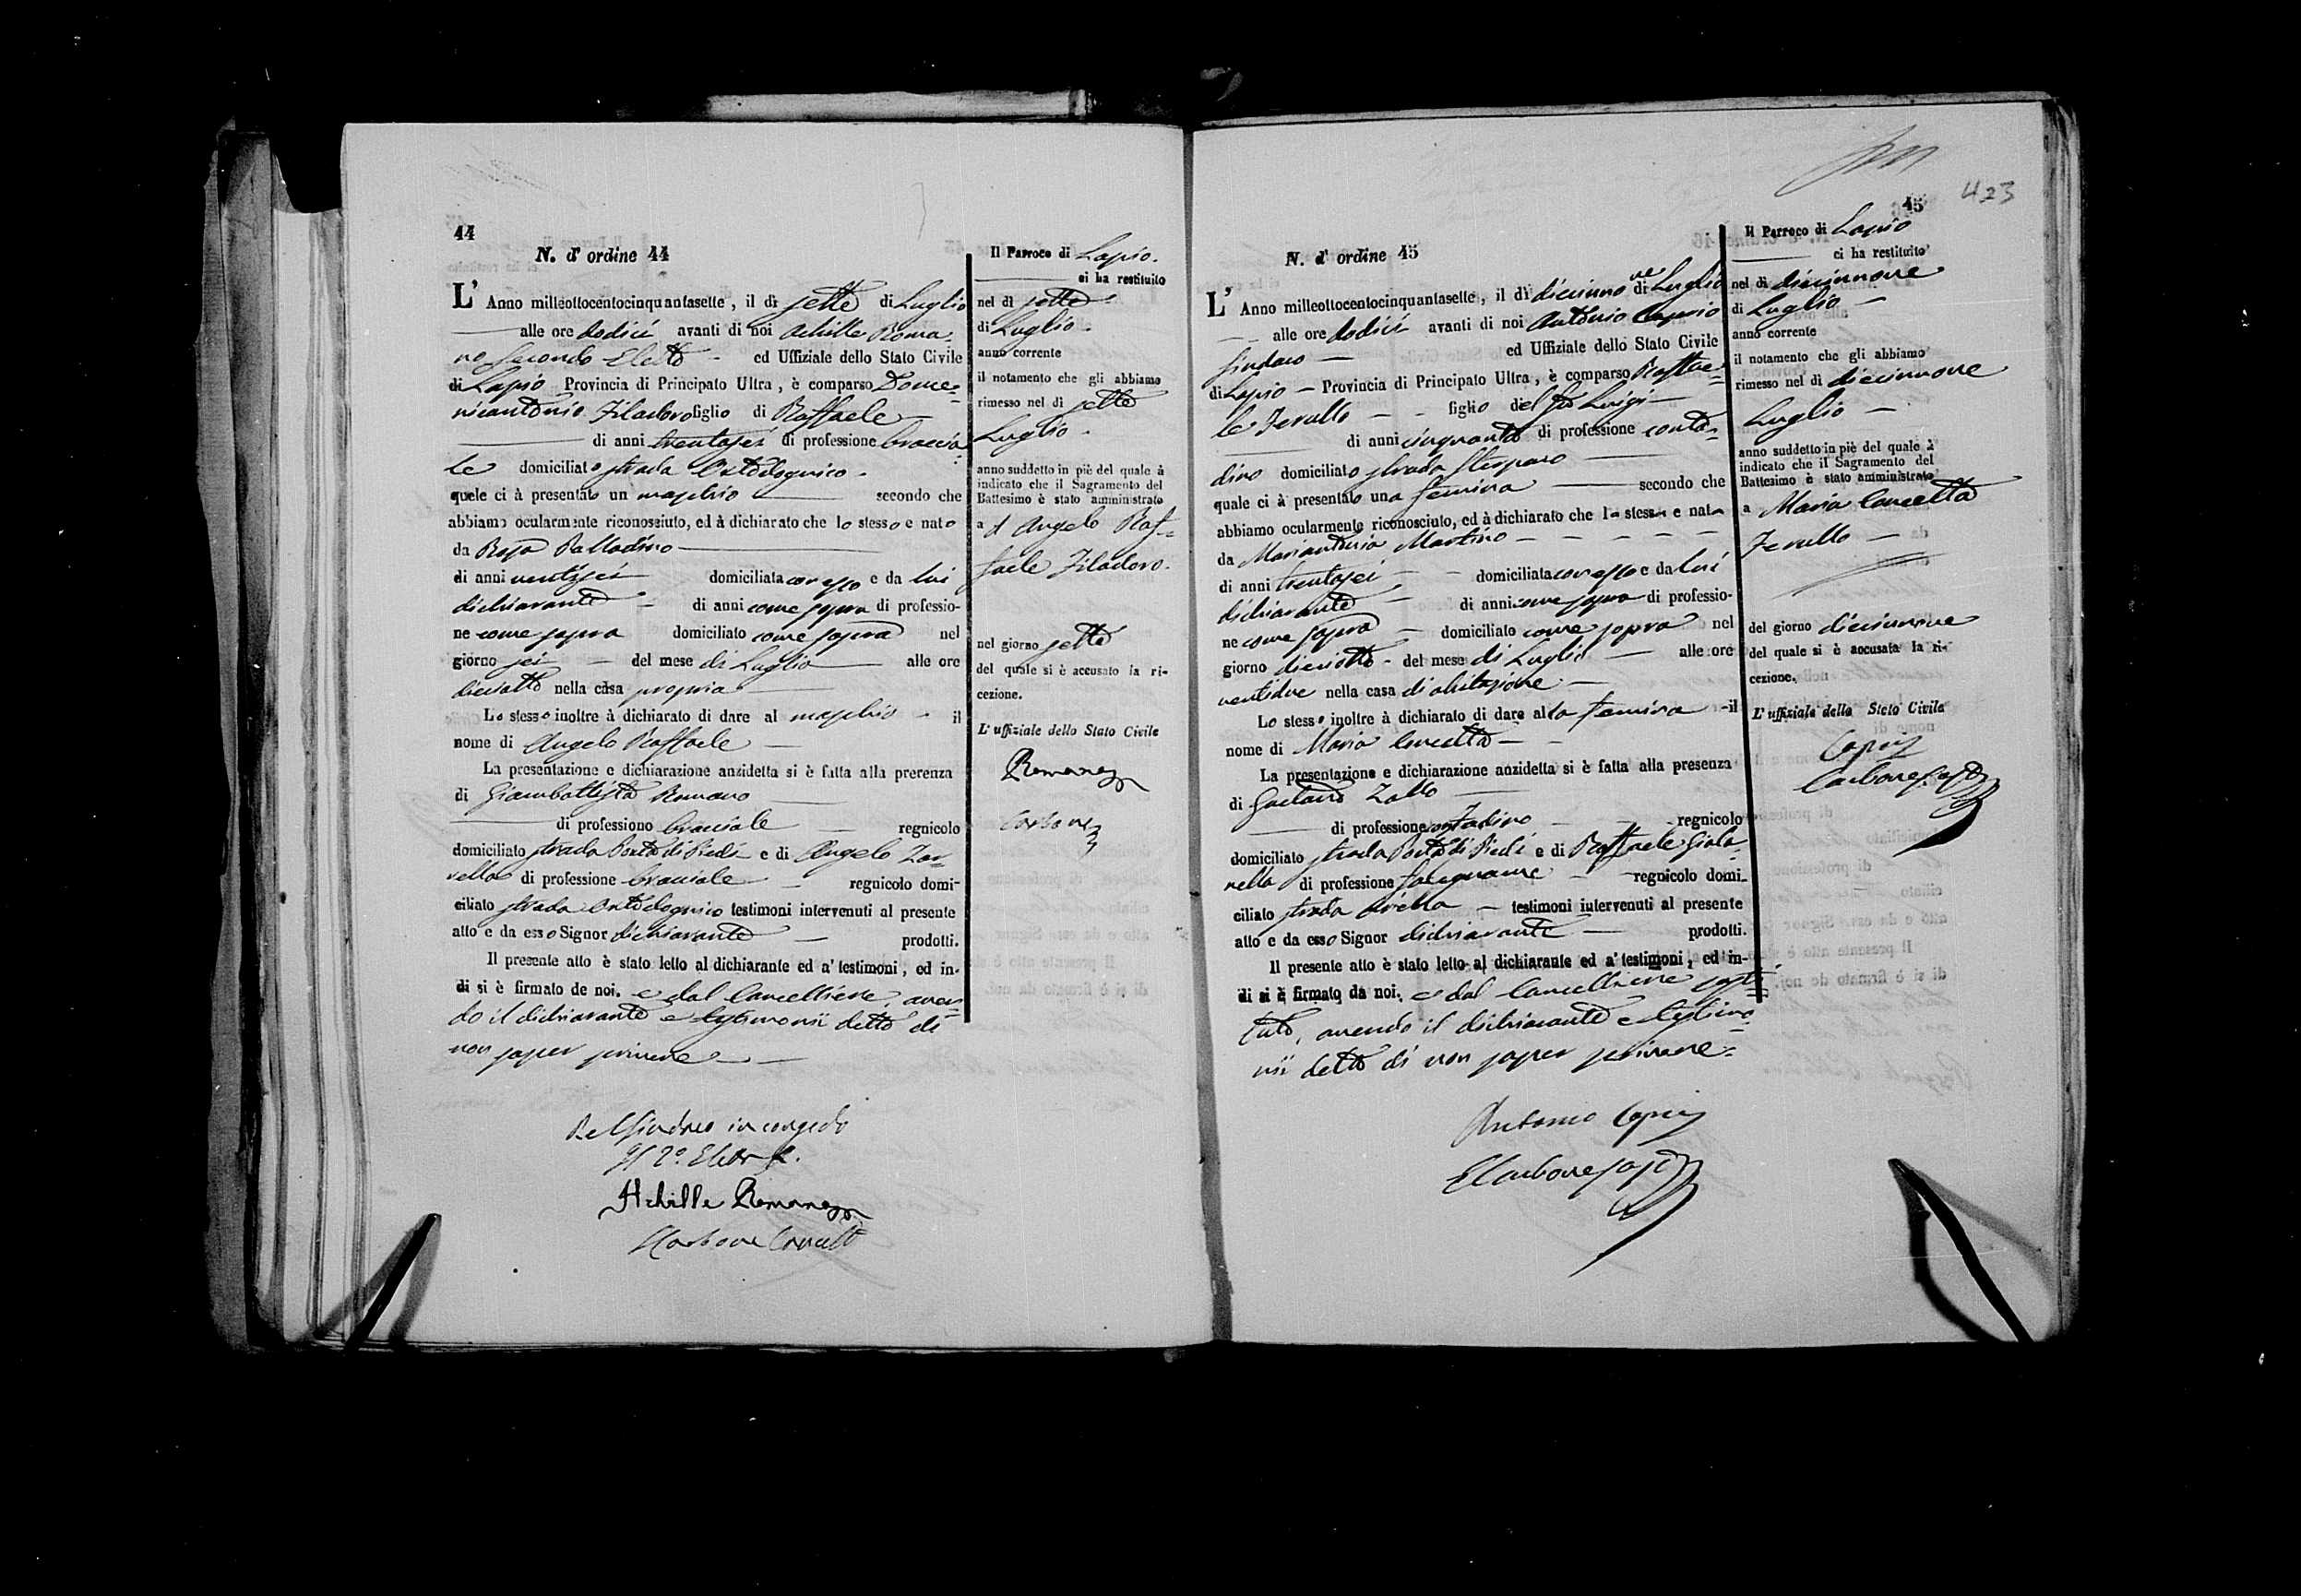 44
N. d' ordine 44
L' Anno milleottocentocinquantasette, il dì sette di Luglio
alle ore dodici avanti di noi Achille Roma-
no Secondo Eletto ed Uffiziale dello Stato Civile
di Lapio Provincia di Principato Ultra, è comparso Dome-
nicantonio Filadoro figlio di Raffaele
di anni trentasei di professione braccia-
le domiciliato strada
quale ci à presentato un maschio secondo che
abbiamo ocularmente riconosciuto, ed à dichiarato che lo stesso e nato
da Rosa Palladino
di anni ventisei domiciliata con esso e da lui
dichiarante di anni come sopra di professio-
ne come sopra domiciliato come sopra nel
giorno sei del mese di Luglio alle ore
diciotto nella casa propria
Lo stesso inoltre à dichiarato di dare al maschio il
nome di Angelo Raffaele
La presentazione e dichiarazione anzidetta si è fatta alla prerenza
di Giambattista Romano
di professione bracciale regnicolo
domiciliato strada Porta di Piedi e di Angelo Zar-
rella di professione bracciale regnicolo domi-
ciliato strada testimoni intervenuti al presente
atto e da esso Signor dichiarante prodotti.
Il presente atto è stato letto al dichiarante ed a' testimoni, ed in-
di si è firmato de noi, e dal Cancelliere, aven-
do il dichiarante e testimonii detto di
non saper scrivere
Pel Sindaco in congedo
Il 2º. Eletto
Achille Romano
Carbone
Il Parroco di Lapio.
ci ha restituito
nel dì sette
di Luglio.
anno corrente
il notamento che gli abbiamo
rimesso nel dì sette
Luglio.
anno suddetto in piè del quale à
indicato che il Sagramento del
Battesimo è stato amministrato
a d Angelo Raf-
faele Filadoro.
nel giorno sette
del quale si è accusato la ri-
cezione.
L' uffiziale dello Stato Civile
Romano
Carbone
45
423
N. d' ordine 45
L' Anno milleottocentocinquantasette, il dì diecinnove di Luglio
alle ore dodici avanti di noi Antonio Caprio
Sindaco ed Uffiziale dello Stato Civile
di Lapio Provincia di Principato Ultra, è comparso Raffae-
le Ferullo figlio del fu Luigi
di anni cinquanta di professione conta-
dino domiciliato strada
quale ci à presentato una femina secondo che
abbiamo ocularmente riconosciuto, ed à dichiarato che la stessa e nata
da Mariantonia Martino
di anni trentasei domiciliata con esso e da lui
dichiarante di anni come sopra di professio-
ne come sopra domiciliato come sopra nel
giorno dieciotto del mese di Luglio alle ore
ventidue nella casa di abitazione
Lo stesso inoltre à dichiarato di dare alla femina il
nome di Maria Concetta
La presentazione e dichiarazione anzidetta si è fatta alla presenza
di Gaetano Zollo
di professione contadino regnicolo
domiciliato strada Porta di Piedi e di Raffaele Giala-
nella di professione falegname regnicolo domi-
ciliato strada testimoni intervenuti al presente
atto e da esso Signor dichiarante prodotti.
Il presente atto è stato letto al dichiarante ed a' testimoni, ed in-
di si è firmato da noi, e dal Cancelliere sosti-
tuto, avendo il dichiarante e testimo-
nii detto di non saper scrivere
Antonio Caprio
Carbone sost
Il Parroco di Lapio
ci ha restituito
nel dì diecinnove
di Luglio
anno corrente
il notamento che gli abbiamo
rimesso nel dì diecinnove
Luglio
anno suddetto in piè del quale à
indicato che il Sagramento del
Battesimo è stato amministrato
a Maria Concetta
Ferullo
del giorno diecinnove
del quale si è accusata la ri-
cezione.
L' uffiziale dello Stato Civile
Caprio
Carbone sost